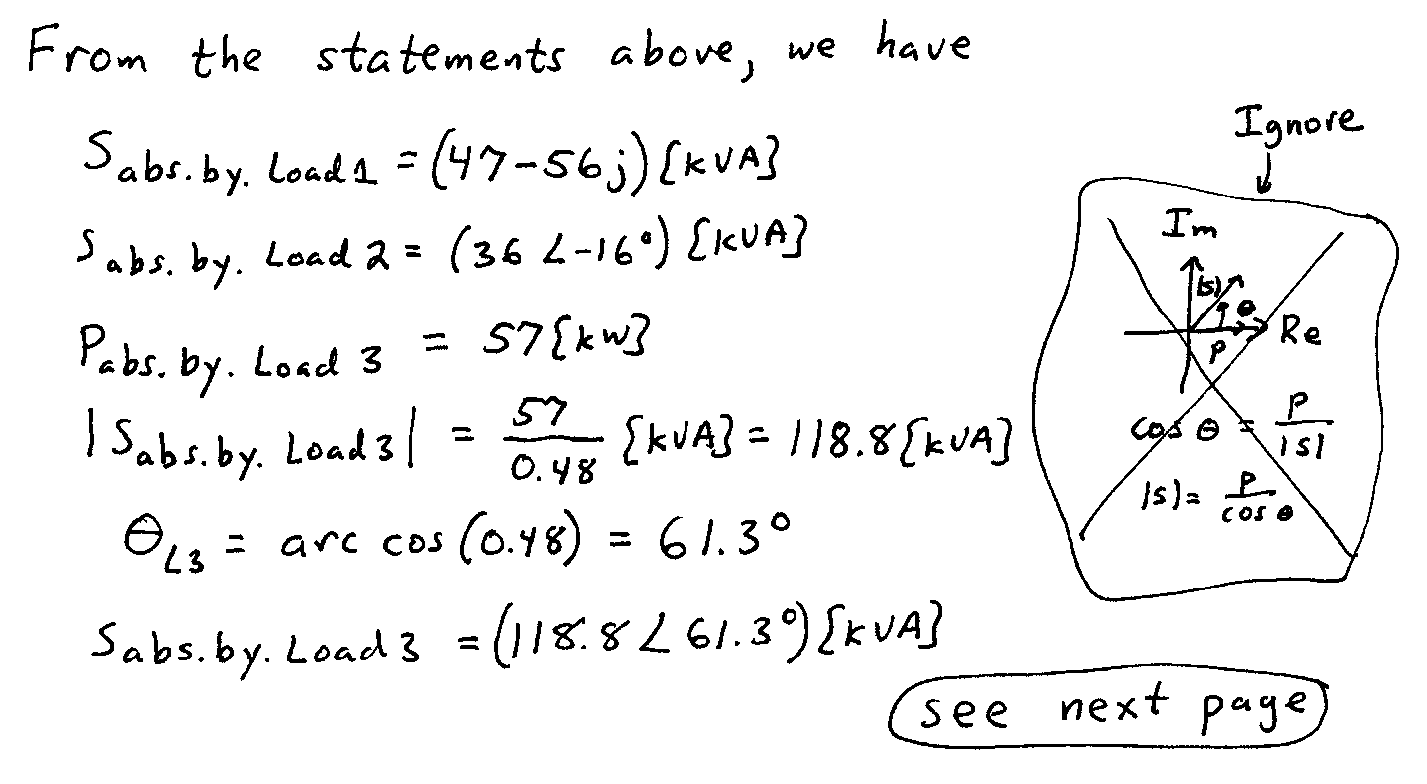 From the statements above, we have
S abs.by. Load 1 = (47-56j) [kVA]
S abs. by. Load 2 = (36 ∠-16°) [kVA]
P abs. by. Load 3 = 57 [kW]
|S abs.by. Load 3| = 57/0.48 [kVA] = 118.8 [kVA]
θ L3 = arc cos (0.48) = 61.3°
S abs.by. Load 3 = (118.8 ∠ 61.3°) [kVA]
see next page
Ignore
Im
|s| θ
Re
P
cos θ = P/|s|
|s| = P/cos θ